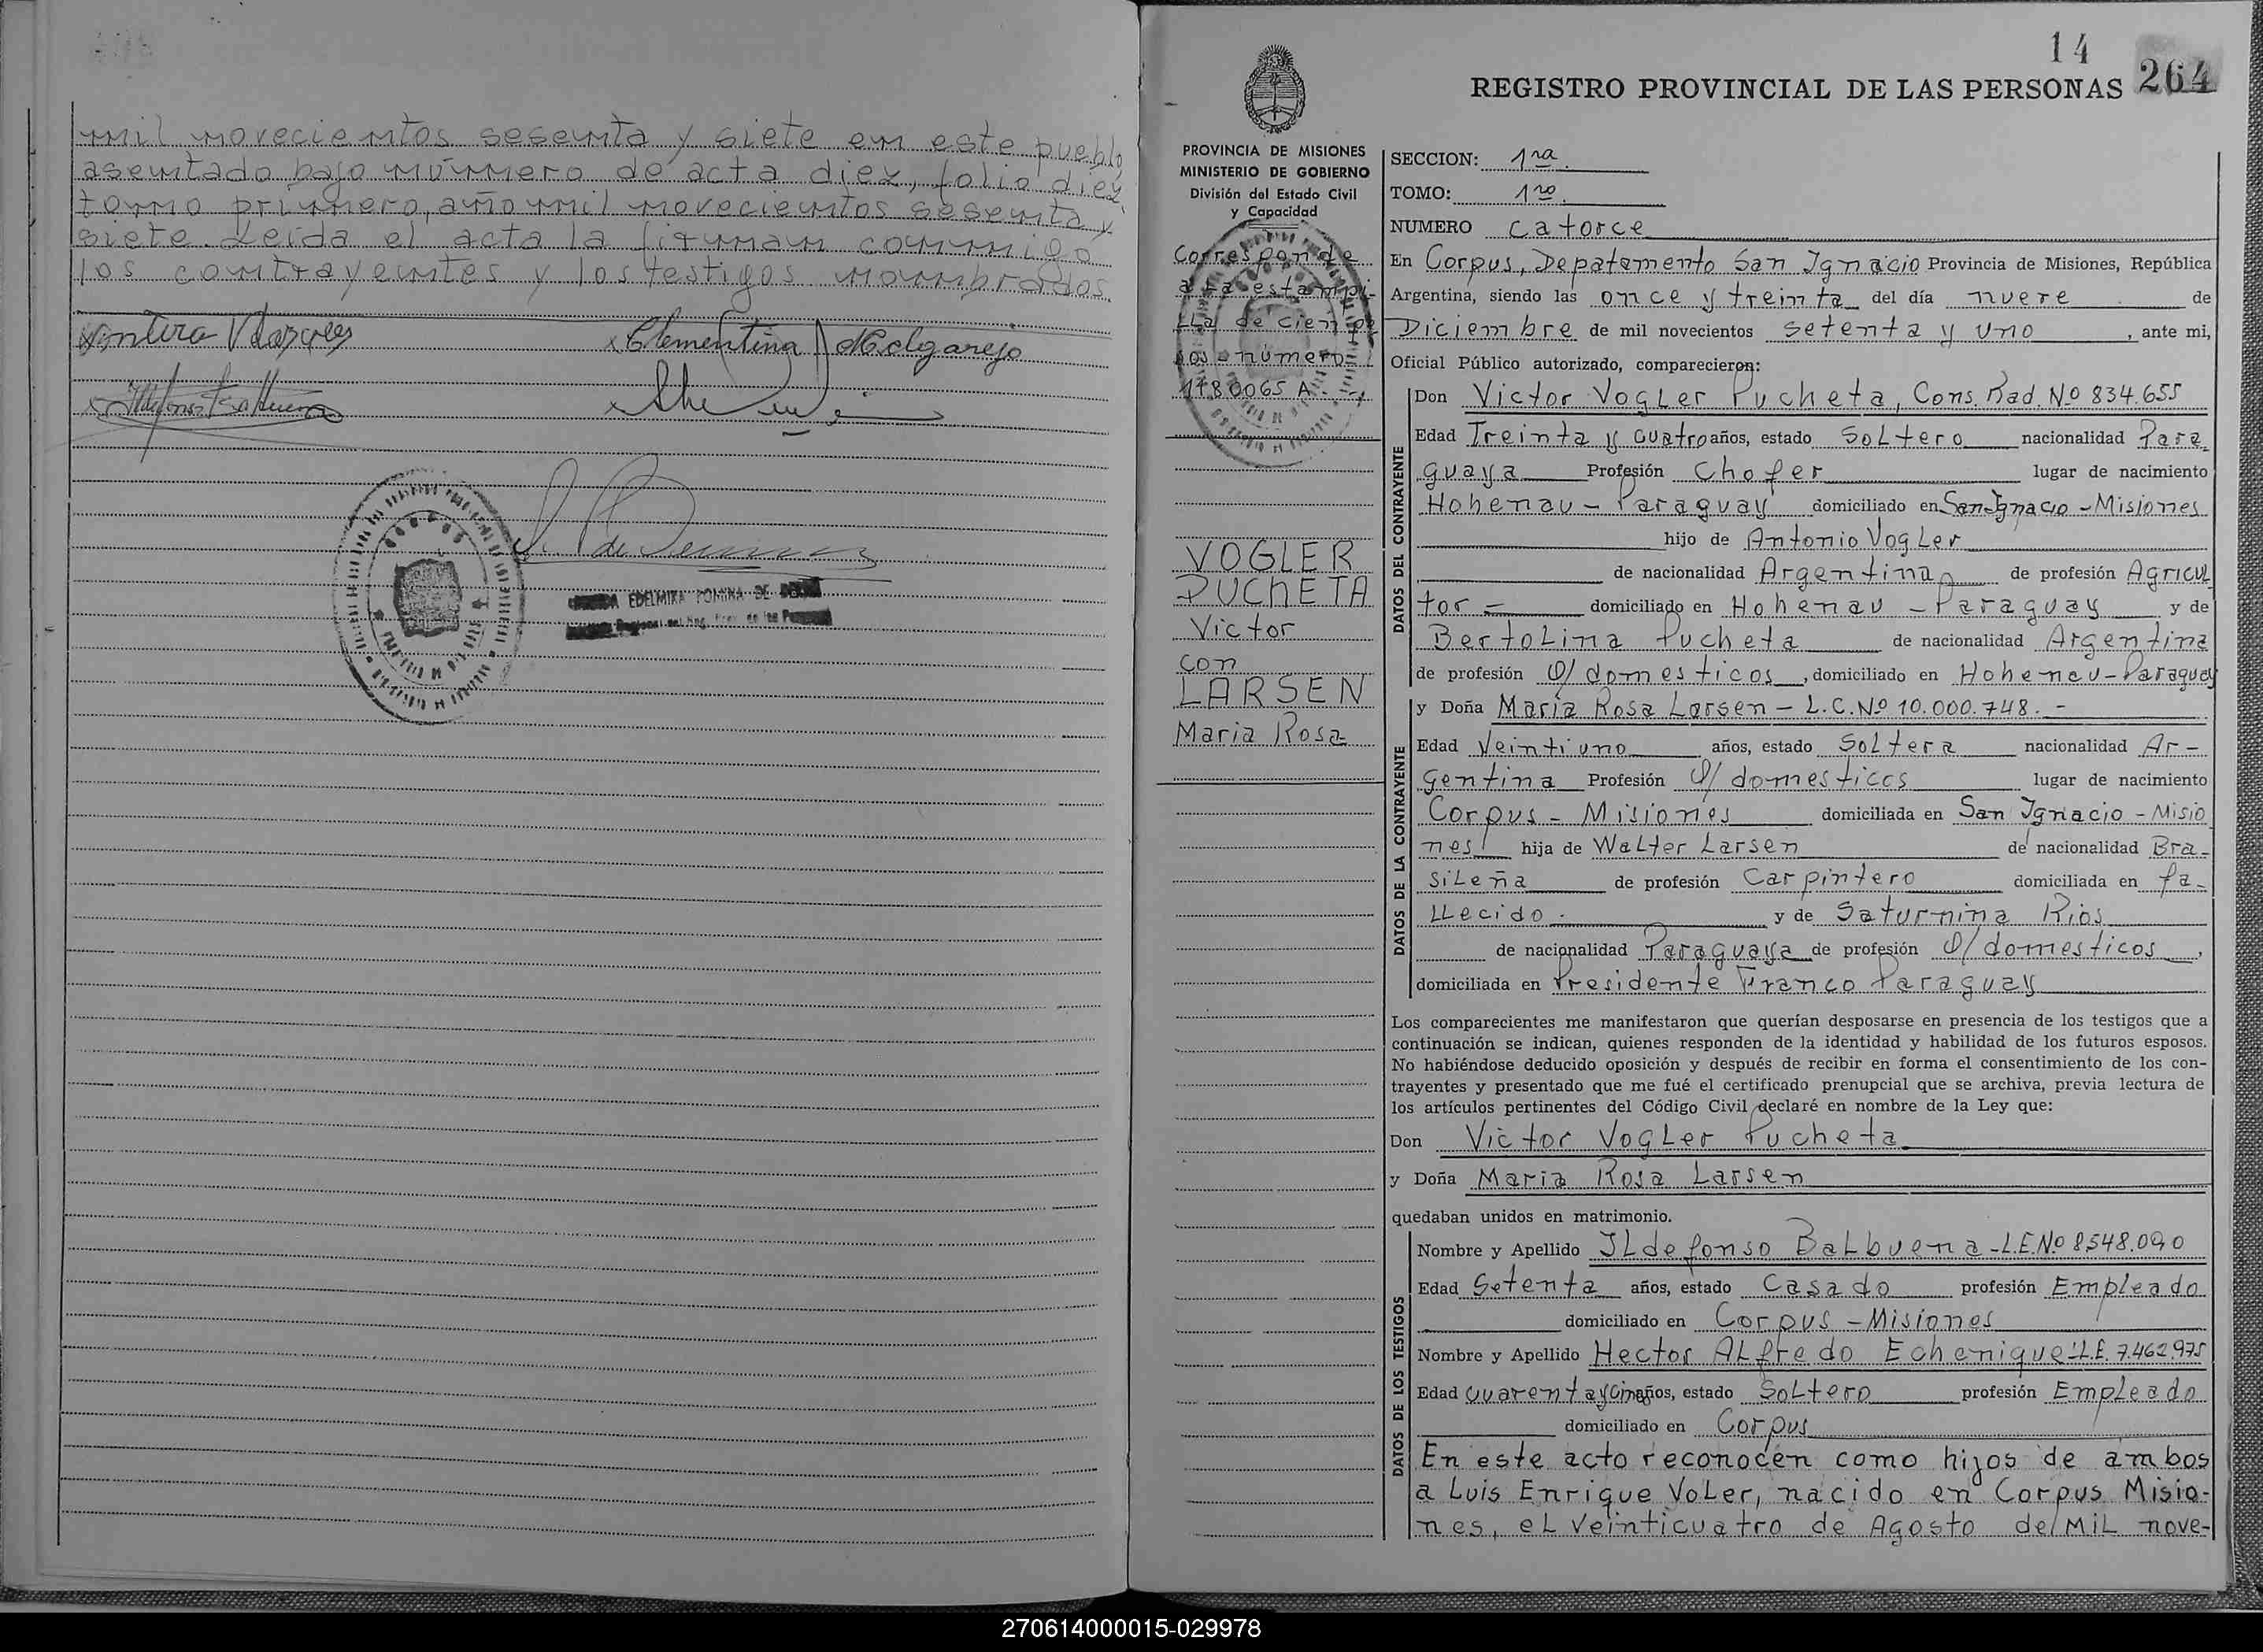 mil novecientos sesenta y siete en este pueblo
asentado bajo número de acta diez, folio diez
tomo primero, año mil novecientos sesenta y
siete. Leida el acta la firman conmigo
los contrayentes y los testigos nombrados
Clementina Melgarejo
EDELMIRA ROMINA DE
14
264
REGISTRO PROVINCIAL DE LAS PERSONAS
PROVINCIA DE MISIONES
MINISTERIO DE GOBIERNO
División del Estado Civil
y Capacidad
Corresponde
a la estampi-
lla de cien pe
sos número
1780065 A.
VOGLER
PUCHETA
Victor
con
LARSEN
Maria Rosa
SECCION: 1ra.
TOMO: 1ro.
NUMERO catorce
En Corpus, Depatamento San Ignacio Provincia de Misiones, República
Argentina, siendo las once y treinta del día nueve de
Diciembre de mil novecientos setenta y uno, ante mi,
Oficial Público autorizado, comparecieron:
DATOS DEL CONTRAYENTE
Don Victor Vogler Pucheta, Cons. Rad. Nº 834.655
Edad Treinta y cuatro años, estado Soltero nacionalidad Para
guaya Profesión Chofer lugar de nacimiento
Hohenau - Paraguay domiciliado en San Ignacio - Misiones
hijo de Antonio Vogler
de nacionalidad Argentina de profesión Agricul
tor - domiciliado en Hohenau - Paraguay y de
Bertolina Pucheta de nacionalidad Argentina
de profesión Q/ domesticos, domiciliado en Hohenau - Paraguay
DATOS DE LA CONTRAYENTE
y Doña María Rosa Larsen - L.C. Nº 10.000.748. -
Edad Veintiuno años, estado Soltera nacionalidad Ar-
gentina Profesión Q/ domesticos lugar de nacimiento
Corpus - Misiones domiciliada en San Ignacio - Misio
nes hija de Walter Larsen de nacionalidad Bra-
sileña de profesión Carpintero domiciliada en fa-
llecido. y de Saturnina Rios
de nacionalidad Paraguaya de profesión Q/ domesticos,
domiciliada en Presidente Franco Paraguay
Los comparecientes me manifestaron que querían desposarse en presencia de los testigos que a
continuación se indican, quienes responden de la identidad y habilidad de los futuros esposos.
No habiéndose deducido oposición y después de recibir en forma el consentimiento de los con-
trayentes y presentado que me fué el certificado prenupcial que se archiva, previa lectura de
los artículos pertinentes del Código Civil declaré en nombre de la Ley que:
Don Victor Vogler Pucheta
y Doña Maria Rosa Larsen
quedaban unidos en matrimonio.
DATOS DE LOS TESTIGOS
Nombre y Apellido Ildefonso Balbuena - L.E. Nº 8548.090
Edad Setenta años, estado Casado profesión Empleado
domiciliado en Corpus - Misiones
Nombre y Apellido Hector Alfredo Echenique - L.E. 7.462.975
Edad cuarenta y cinco años, estado Soltero profesión Empleado
domiciliado en Corpus
En este acto reconocen como hijos de ambos
a Luis Enrique Voler, nacido en Corpus Misio-
nes, el veinticuatro de Agosto del Mil nove-
270614000015-029978